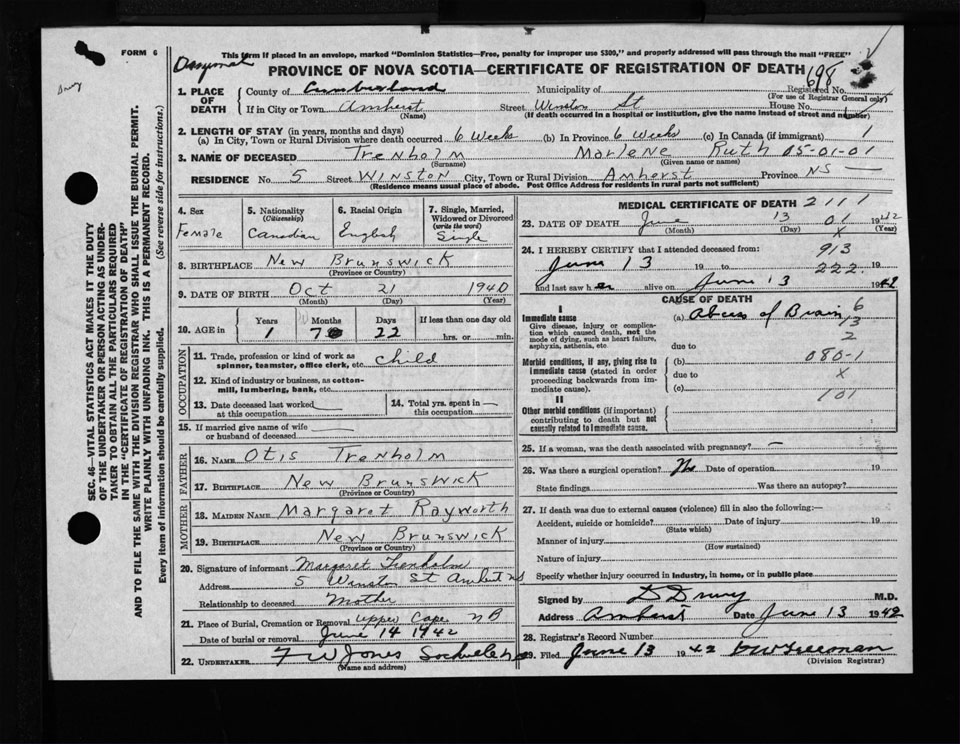 FORM 6
This form if placed in an envelope, marked "Dominion Statistics—Free, penalty for improper use $300," and properly addressed will pass through the mail "FREE"
PROVINCE OF NOVA SCOTIA—CERTIFICATE OF REGISTRATION OF DEATH 698
Drury
SEC. 46—VITAL STATISTICS ACT MAKES IT THE DUTY
OF THE UNDERTAKER OR PERSON ACTING AS UNDER-
TAKER TO OBTAIN ALL THE PARTICULARS REQUIRED
IN THE "CERTIFICATE OF REGISTRATION OF DEATH"
AND TO FILE THE SAME WITH THE DIVISION REGISTRAR WHO SHALL ISSUE THE BURIAL PERMIT.
WRITE PLAINLY WITH UNFADING INK. THIS IS A PERMANENT RECORD.
Every item of information should be carefully supplied. (See reverse side for instructions.)
1. PLACE OF DEATH
County of Cumberland Municipality of Registered No.
(For use of Registrar General only)
If in City or Town Amherst Street Winston St House No.
(Name) (If death occurred in a hospital or institution, give the name instead of street and number)
2. LENGTH OF STAY (in years, months and days)
(a) In City, Town or Rural Division where death occurred 6 Weeks (b) In Province 6 Weeks (c) In Canada (if immigrant) 1
3. NAME OF DECEASED Trenholm Marlene Ruth 05-01-01
(Surname) (Given name or names)
RESIDENCE No. 5 Street Winston City, Town or Rural Division Amherst Province NS —
(Residence means usual place of abode. Post Office Address for residents in rural parts not sufficient)
4. Sex
Female
5. Nationality
(Citizenship)
Canadian
6. Racial Origin
English
7. Single, Married, Widowed or Divorced
(write the word)
Single
8. BIRTHPLACE New Brunswick
(Province or Country)
9. DATE OF BIRTH Oct 21 1940
(Month) (Day) (Year)
10. AGE in
Years Months Days If less than one day old
1 7 22 hrs. or min.
OCCUPATION
11. Trade, profession or kind of work as spinner, teamster, office clerk, etc. child
12. Kind of industry or business, as cotton-mill, lumbering, bank, etc.
13. Date deceased last worked at this occupation —
14. Total yrs. spent in this occupation —
15. If married give name of wife or husband of deceased —
FATHER
16. NAME Otis Trenholm
17. BIRTHPLACE New Brunswick
(Province or Country)
MOTHER
18. MAIDEN NAME Margaret Rayworth
19. BIRTHPLACE New Brunswick
(Province or Country)
20. Signature of informant Margaret Trenholm
Address 5 Winston St Amherst NS
Relationship to deceased Mother
21. Place of Burial, Cremation or Removal Upper Cape NB
Date of burial or removal June 14 1942
22. UNDERTAKER F W Jones
(Name and address)
MEDICAL CERTIFICATE OF DEATH 2111
23. DATE OF DEATH June 13 01 1942
(Month) (Day) X (Year)
24. I HEREBY CERTIFY that I attended deceased from: 913
June 13 19 to 222 19
and last saw her alive on June 13 1942
CAUSE OF DEATH
Immediate cause
Give disease, injury or complication which caused death, not the mode of dying, such as heart failure, asphyxia, asthenia, etc.
(a) Abcess of Brain 6
13
due to 2
Morbid conditions, if any, giving rise to immediate cause (stated in order proceeding backwards from immediate cause).
(b) 080-1
due to X
(c) 101
II
Other morbid conditions (if important) contributing to death but not causally related to immediate cause.
25. If a woman, was the death associated with pregnancy? —
26. Was there a surgical operation? No Date of operation 19
State findings Was there an autopsy?
27. If death was due to external causes (violence) fill in also the following:—
Accident, suicide or homicide? Date of injury 19
(State which)
Manner of injury
(How sustained)
Nature of injury
Specify whether injury occurred in industry, in home, or in public place
Signed by D Drury M.D.
Address Amherst Date June 13 1942
28. Registrar's Record Number
29. Filed June 13 1942
(Division Registrar)